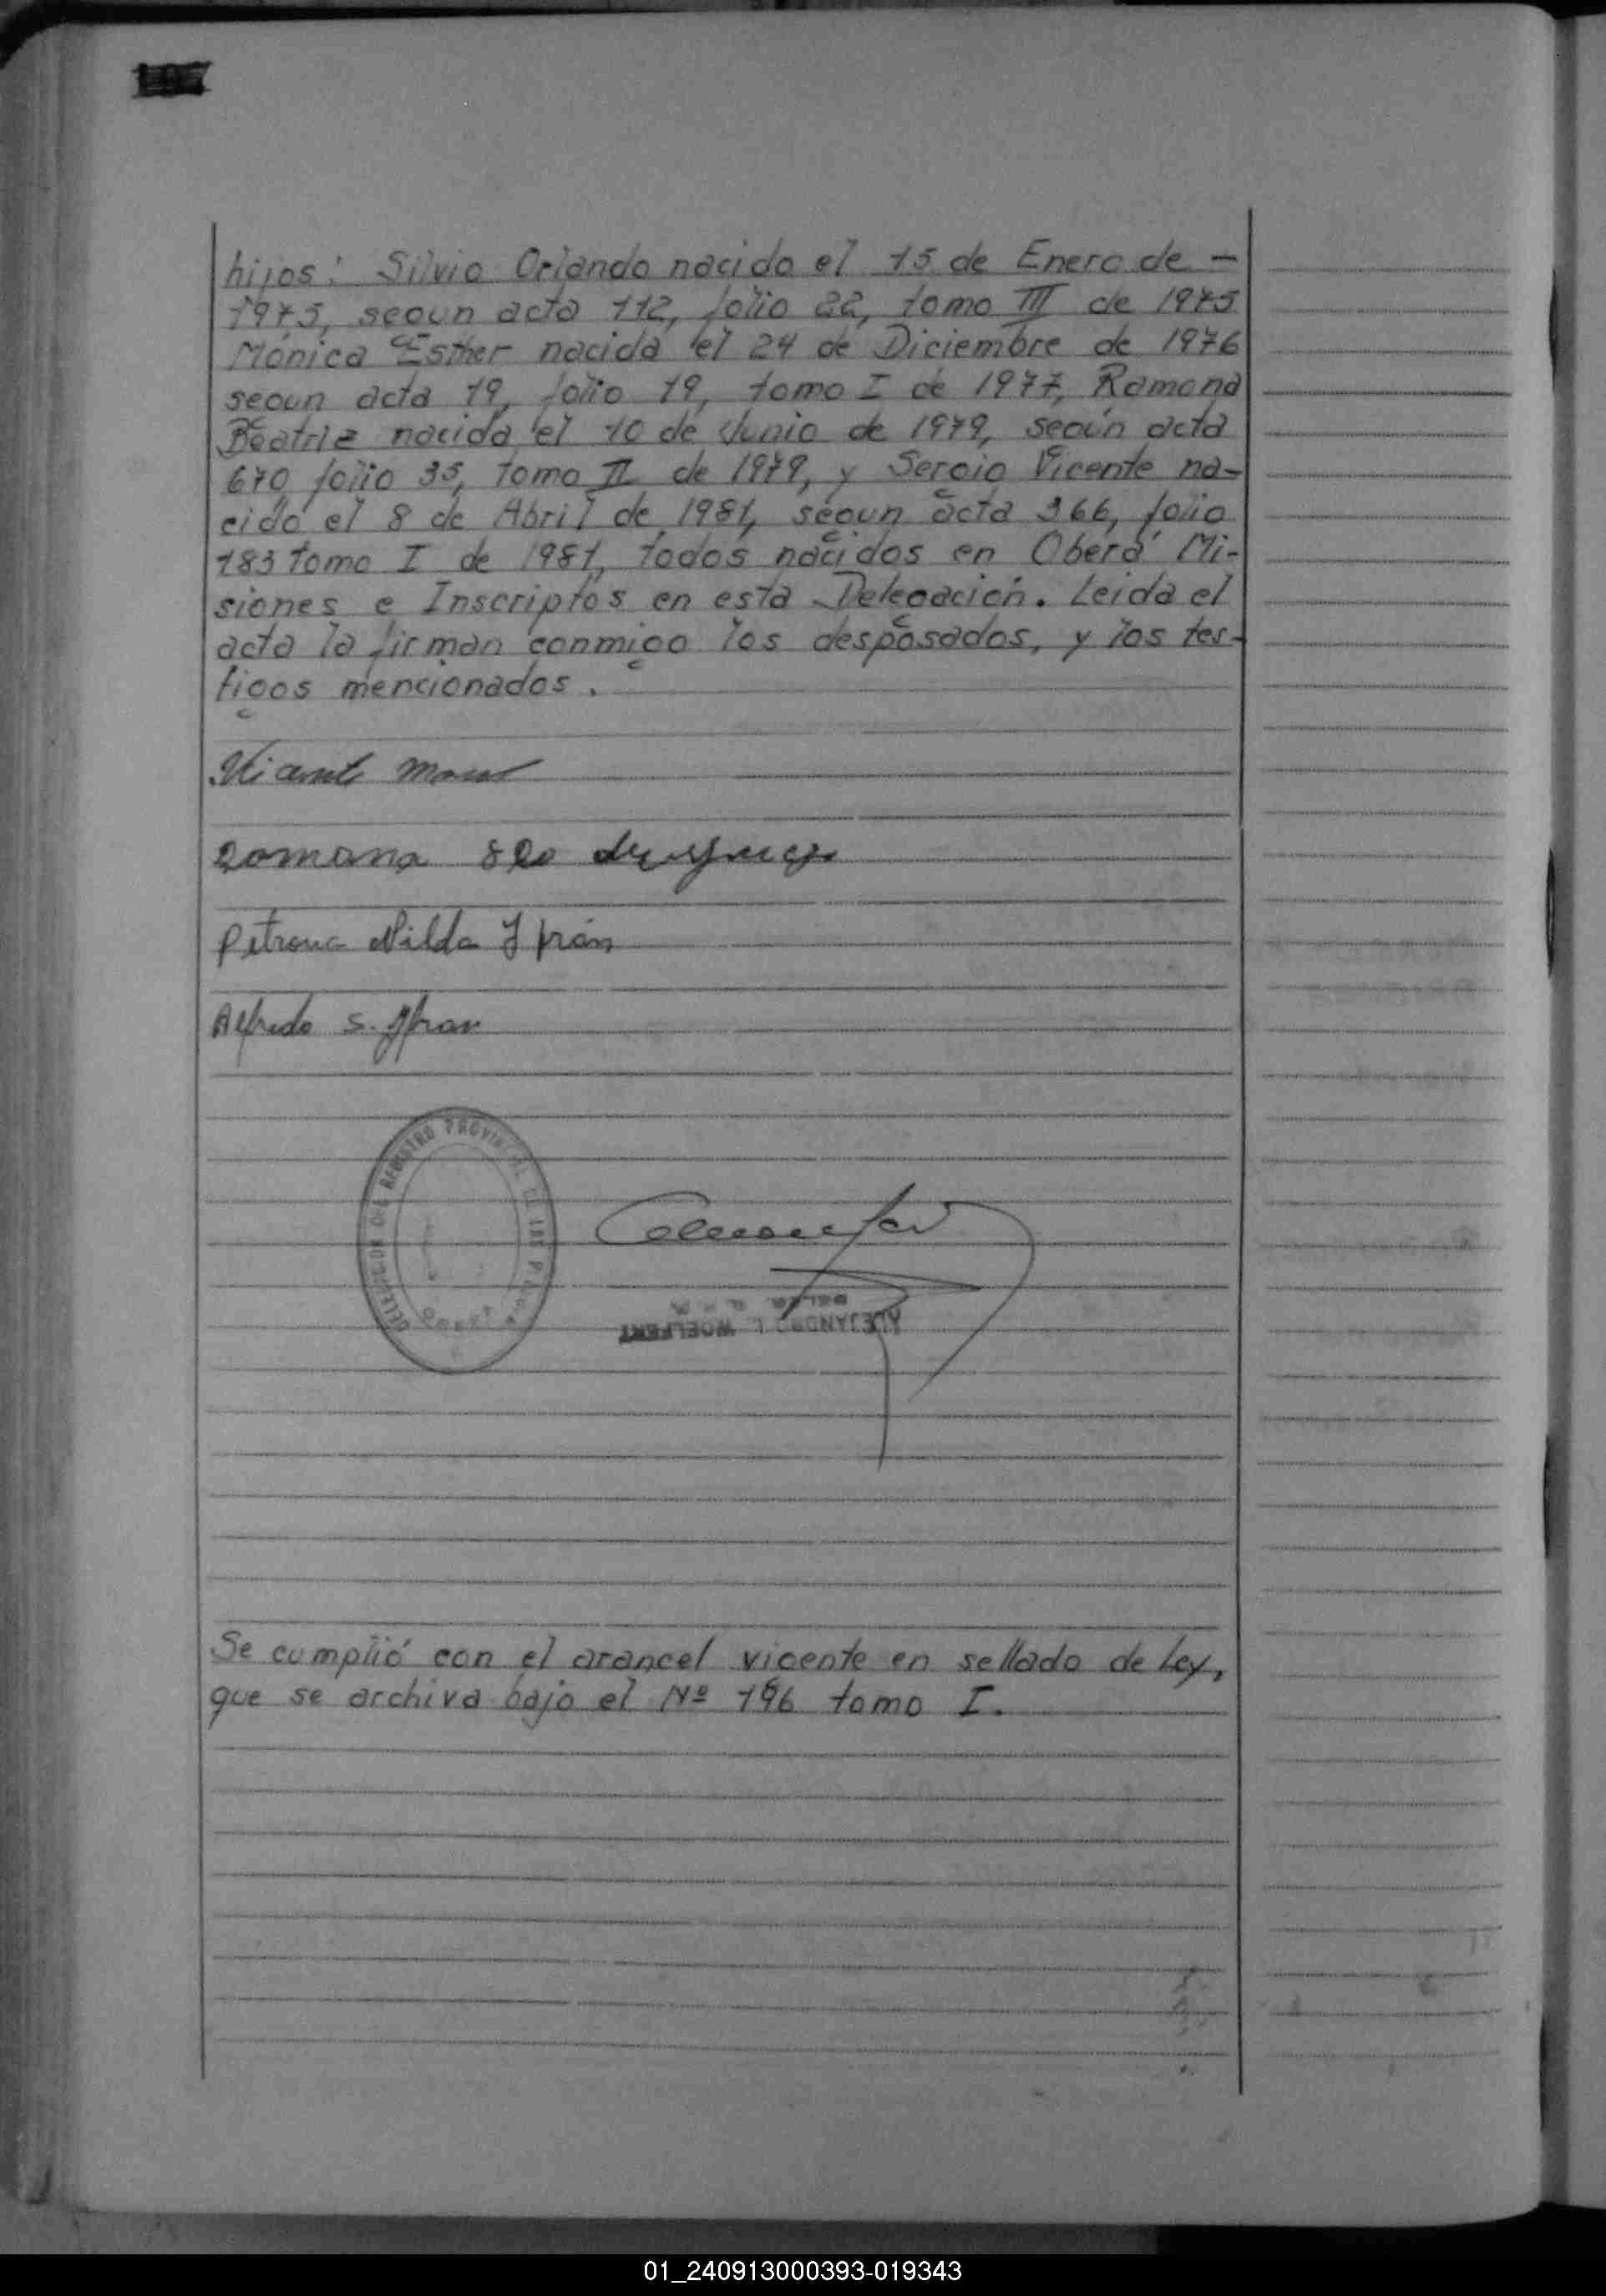 hijos: Silvio Orlando nacido el 15 de Enero de -
1975, segun acta 112, folio 22, tomo III de 1975
Mónica Esther nacida el 24 de Diciembre de 1976
segun acta 19, folio 19, tomo I de 1977, Ramona
Beatriz nacida el 10 de Junio de 1979, según acta
670 folio 35, tomo II de 1979, y Sergio Vicente na-
cido el 8 de Abril de 1981, segun acta 366, folio
183 tomo I de 1981, todos nacidos en Oberá Mi-
siones e Inscriptos en esta Delegación. Leida el
acta la firman conmigo los desposados, y los tes-
tigos mencionados.
Vicente
Romana
Petrona Nilda Ifrán
Alfredo S. Ifran
DELEGACION DEL REGISTRO PROVINCIAL DE LAS PERSONAS
ALEJANDRO I. WOELFERT
Se cumplió con el arancel vigente en sellado de Ley,
que se archiva bajo el Nº 196 tomo I.
01_240913000393-019343